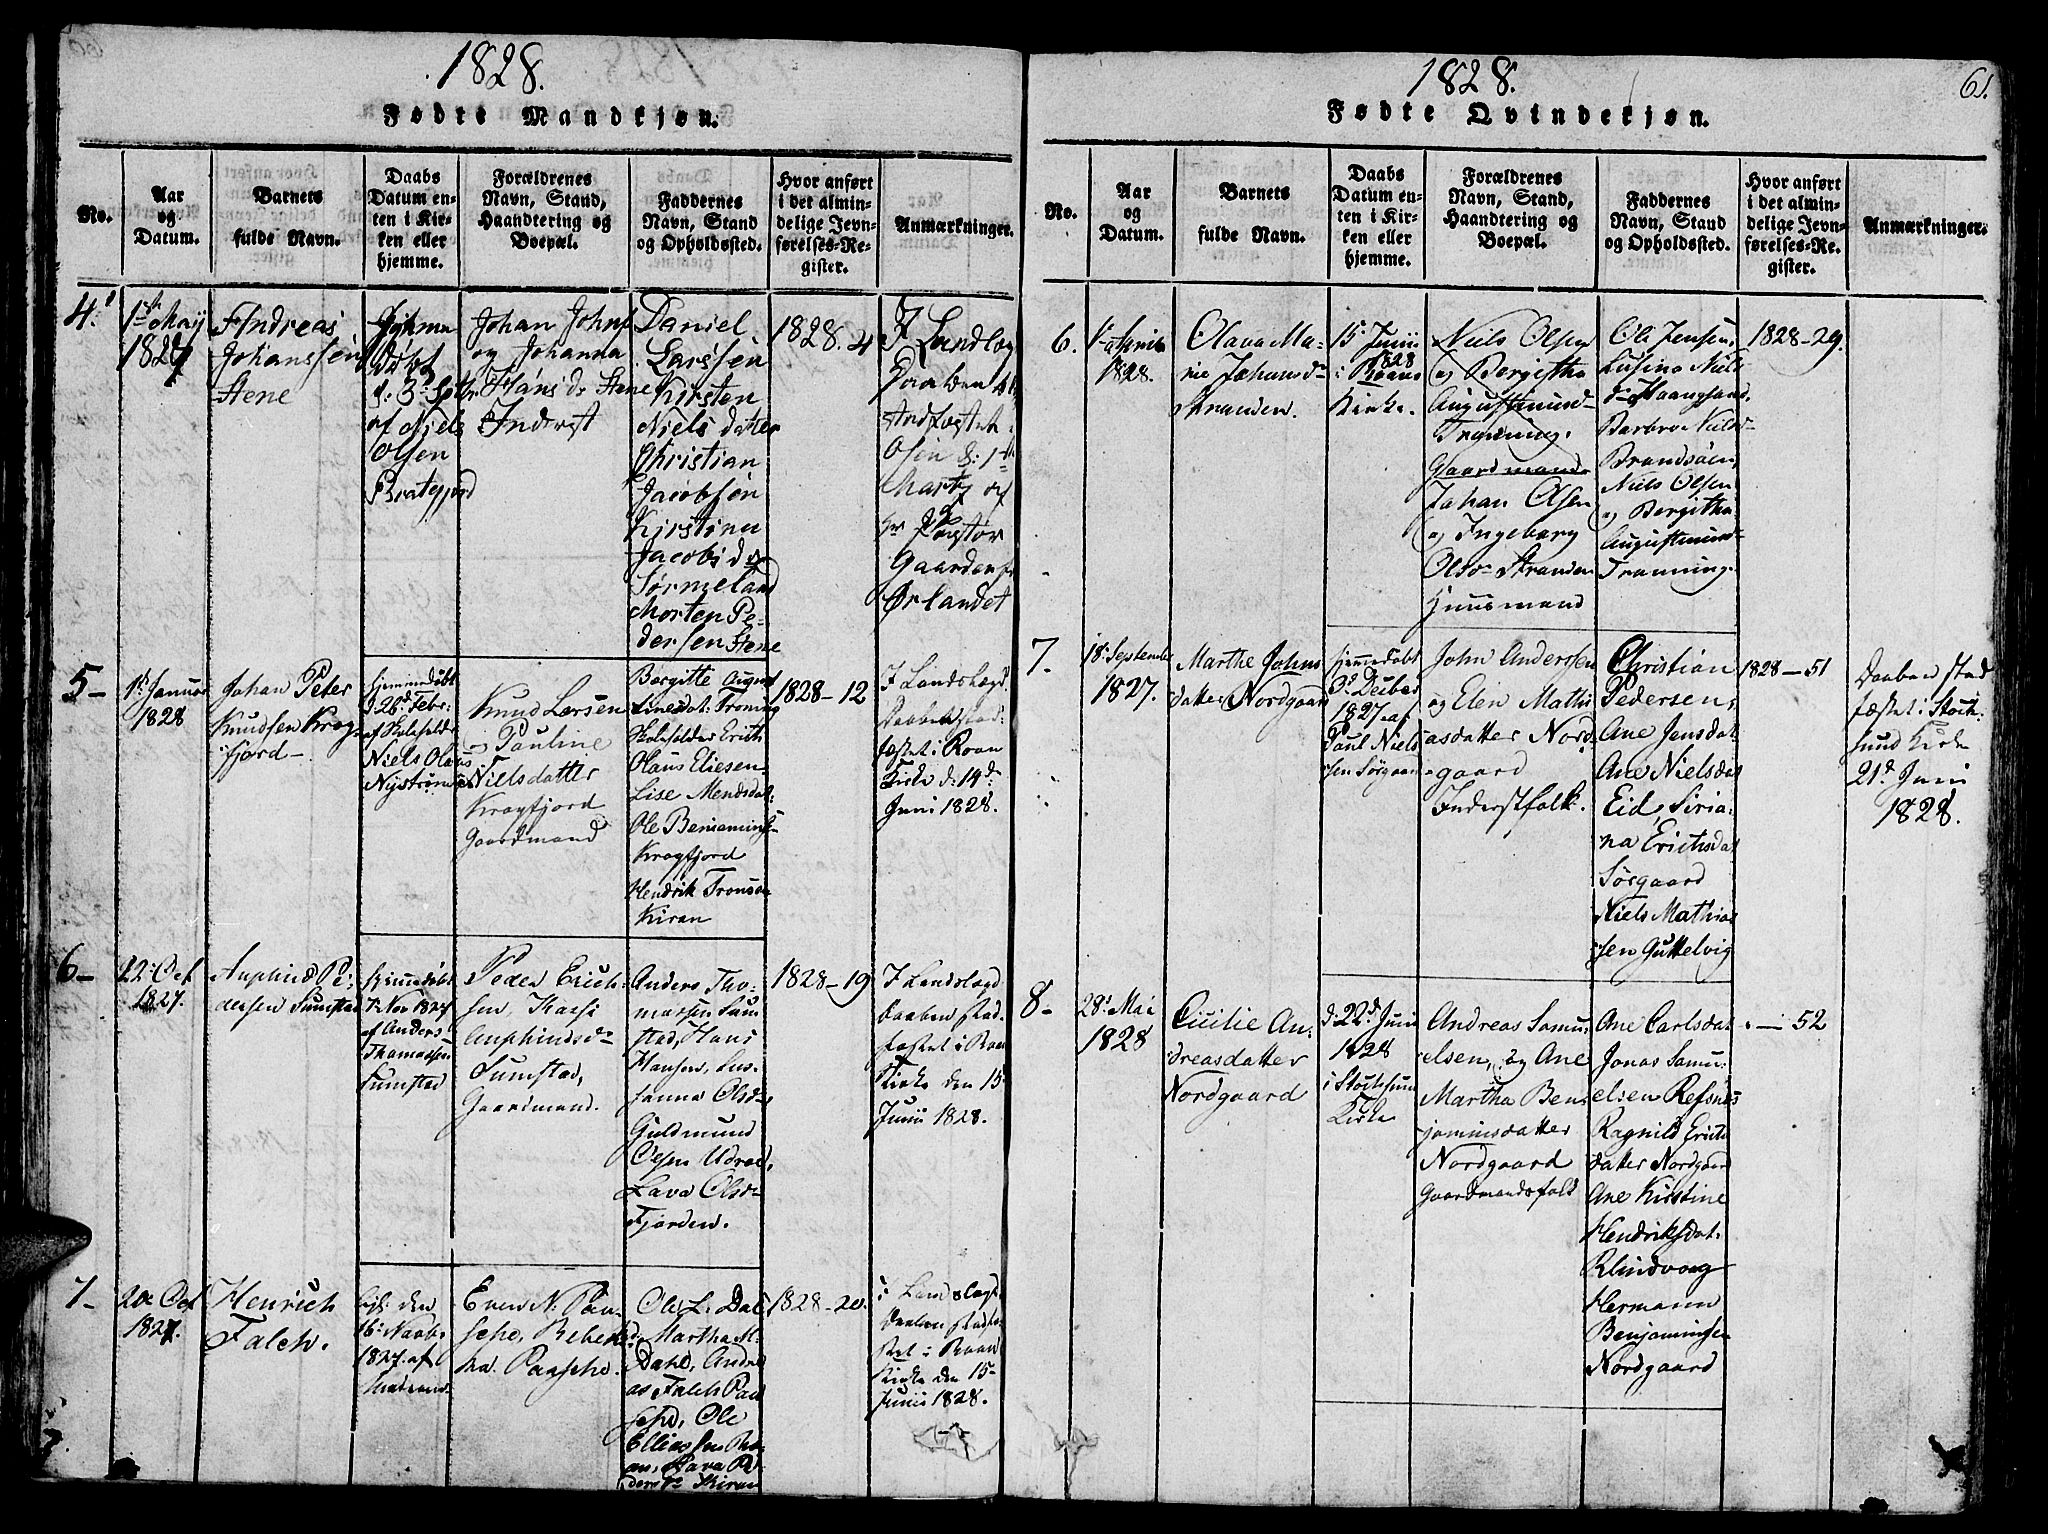 1828.
Fødte Mandkjøn.
No.
Aar
og
Datum.
Barnets
fulde Navn.
Daabs
Datum en-
ten i Kir-
ken eller
hjemme.
Forældrenes
Navn, Stand,
Haandtering og
Boepæl.
Faddernes
Navn, Stand
og Opholdssted.
Hvor anført
i det almin-
delige Jevn-
førelses-Re-
gister.
Anmærkninger.
4.
1ste Maij
1827
Andreas
Johanssen
Stene
Hjemme
døbt
d: 3
af Niels
Olsen
Bratgjerd
Johan Johns
og Johanna
Hans dr Stene
Inderst
Daniel
Larssen
Kirsten
Niels datter
Christian
Jacobsen
Kirstina
Jacobs dr
Sørmeland
Morten Pe-
dersen Stene
1828. 4
I Landlæg
Daaben
stadfæstet
Osen d: 1
Martj af
Hr Pastor
Gaarder
Ørlandet
5-
1 Januar
1828
Johan Peter
Knudsen Krog-
fjord-
Hjemmedøbt
d 28de Febr:
af Skoleholder
Niels Olaus
Nystrømer
Knud Larsen
og Pauline
Nielsdatter
Krogfjord
Gaardmand
Bergitte August
Skoleholder Erich
Olaus Eliesen
Lise Mendsdat:
Ole Benjamins
Krogfjord
Hendrik Tronsen
Kiran
1828-12
I Landslægd
Daaben stad-
fæstet i Roan
Kirke d: 14de
Juni 1828.
6-
22: Oct
1827.
Amphind Pe-
dersen Sumstad
Hjemmedøbt
Nov 1827
af Anders
Thomassen
Sumstad
Peder Erich-
sen,
Amphindsdr
Sumstad,
Gaardmand.
Anders Tho-
massen Sum-
stad, Hans
Hansen, Su-
sanna Olsdr
Guldmund
Olsen
Lava Olsdr
Fjorden.
1828-19
I Landslægd
Daaben stad-
fæstet i Roan
Kirke den 15
Junii 1828.
7-
20 Oct
1827.
Henrich
Falch.
den
16: Novbr
1827. af
Even N: Paa-
sche, Rebek-
ka Paasche.
Ole L: Dal
Martha M.
Dahl, Andre
as Falch Paa
sche, Ole
Elliassen Ro-
an, Lava Pe
dersdr Kiran
1828-20.
i Landslægd
Daaben stadfæ-
stet i Roan
Kirke den 15
Junii 1828.
1828.
61.
Fødte Qvindekjøn.
No.
Aar
og
Datum.
Barnets
fulde Navn.
Daabs
Datum en-
ten i Kir-
ken eller
hjemme.
Forældrenes
Navn, Stand,
Haandtering og
Boepæl.
Faddernes
Navn, Stand
og Opholdssted.
Hvor anført
i det almin-
delige Jevn-
førelses-Re-
gister.
Anmærkninger.
6.
April
1828.
Olava Ma-
rie Johansdr
Stranden.
15 Junii
1828
i Roans
Kirke.
Niels Olsen
og Bergitha
Augustinus-
Traning.
Gaardmand
Johan Olsen
og Ingeborg
Olsdr Stranden
Huusmand
Ole Jensen,
Lusina Niels
dr Haangland,
Barbro Nielsdr
Brandsøen,
Niels Olsen
og Bergitha
Augustinus-
Traning.
1828-29.
7.
18 September
1827.
Marthe Johns
datter Nordgaard
Hjemmedøbt
3d Decbr
1827 af
Paul Niels
sen Sørgaard
John Anderssen
og Elen Mathi
asdatter Nord-
gaard
Inderstfolk.
Christian
Pedersen,
Ane Jensdat
Ane Nielsdat
Eid, Siria-
na Erichsdat
Sørgaard
Niels Mathia
sen Guttelvig
1828-51
Daaben stad
fæstet i Stock-
sund Kirke
21de Juni
1828.
8-
28: Mai
1828
Cicilie An-
dreasdatter
Nordgaard
d: 22de Juni
1828
i Stocksund
Kirke
Andreas Samu-
elsen, og Ane
Martha Ben-
jaminsdatter
Nordgaard
Gaardmandsfolk
Ane Carlsdat
Jonas Samu-
elsen Refsnes
Ragnild Erichs
datter Nordgaard
Ane Kirstine
Hendriksdat.
Blindvaag
Hermann
Benjaminsen
Nordgaard
- 52